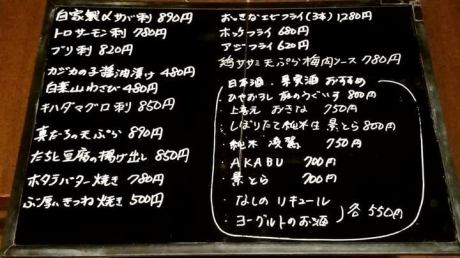 自家製〆サバ刺 890円
トロサーモン刺 780円
ブリ刺 820円
カジカの子醤油漬け 480円
白葉山わさび 480円
キハダマグロ刺 850円
真だちの天ぷら 890円
たちと豆腐の揚げ出し 850円
ホタテバター焼き 780円
ぶ厚いきつね焼き 500円
おっきなエビフライ(3本) 1280円
ホッケフライ 680円
アジフライ 620円
鶏ササミ天ぷら梅肉ソース 780円
日本酒、果実酒 おすすめ
・ひやおろし 蔵のうぐいす 800円
・上喜元 おきな 750円
・しぼりたて純米生 景とら 800円
・純米 凌駕 750円
・AKABU 700円
・景とら 700円
・なしの リキュール
・ヨーグルトのお酒
各 550円